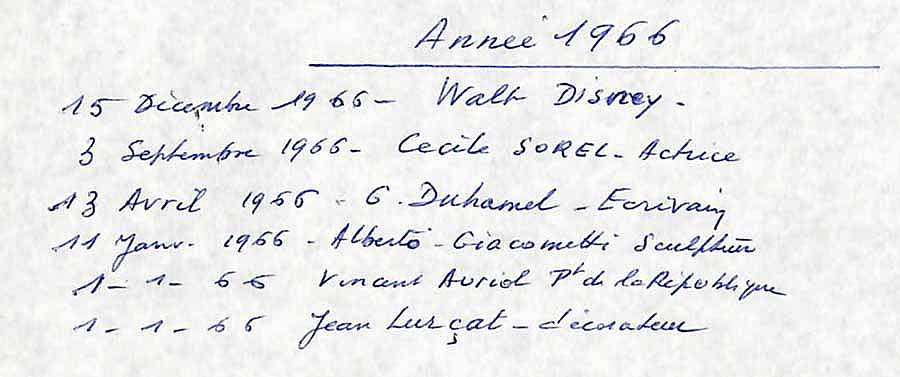 Année 1966
15 Décembre 1966 - Walt Disney -
3 Septembre 1966 - Cecile SOREL - Actrice
13 Avril 1966 - G. Duhamel - Ecrivain
11 Janv. 1966 - Alberto - Giacometti Sculpteur
1 - 1 - 66 Vincent Auriol Pt de la République
1 - 1 - 66 Jean Lurçat - décorateur